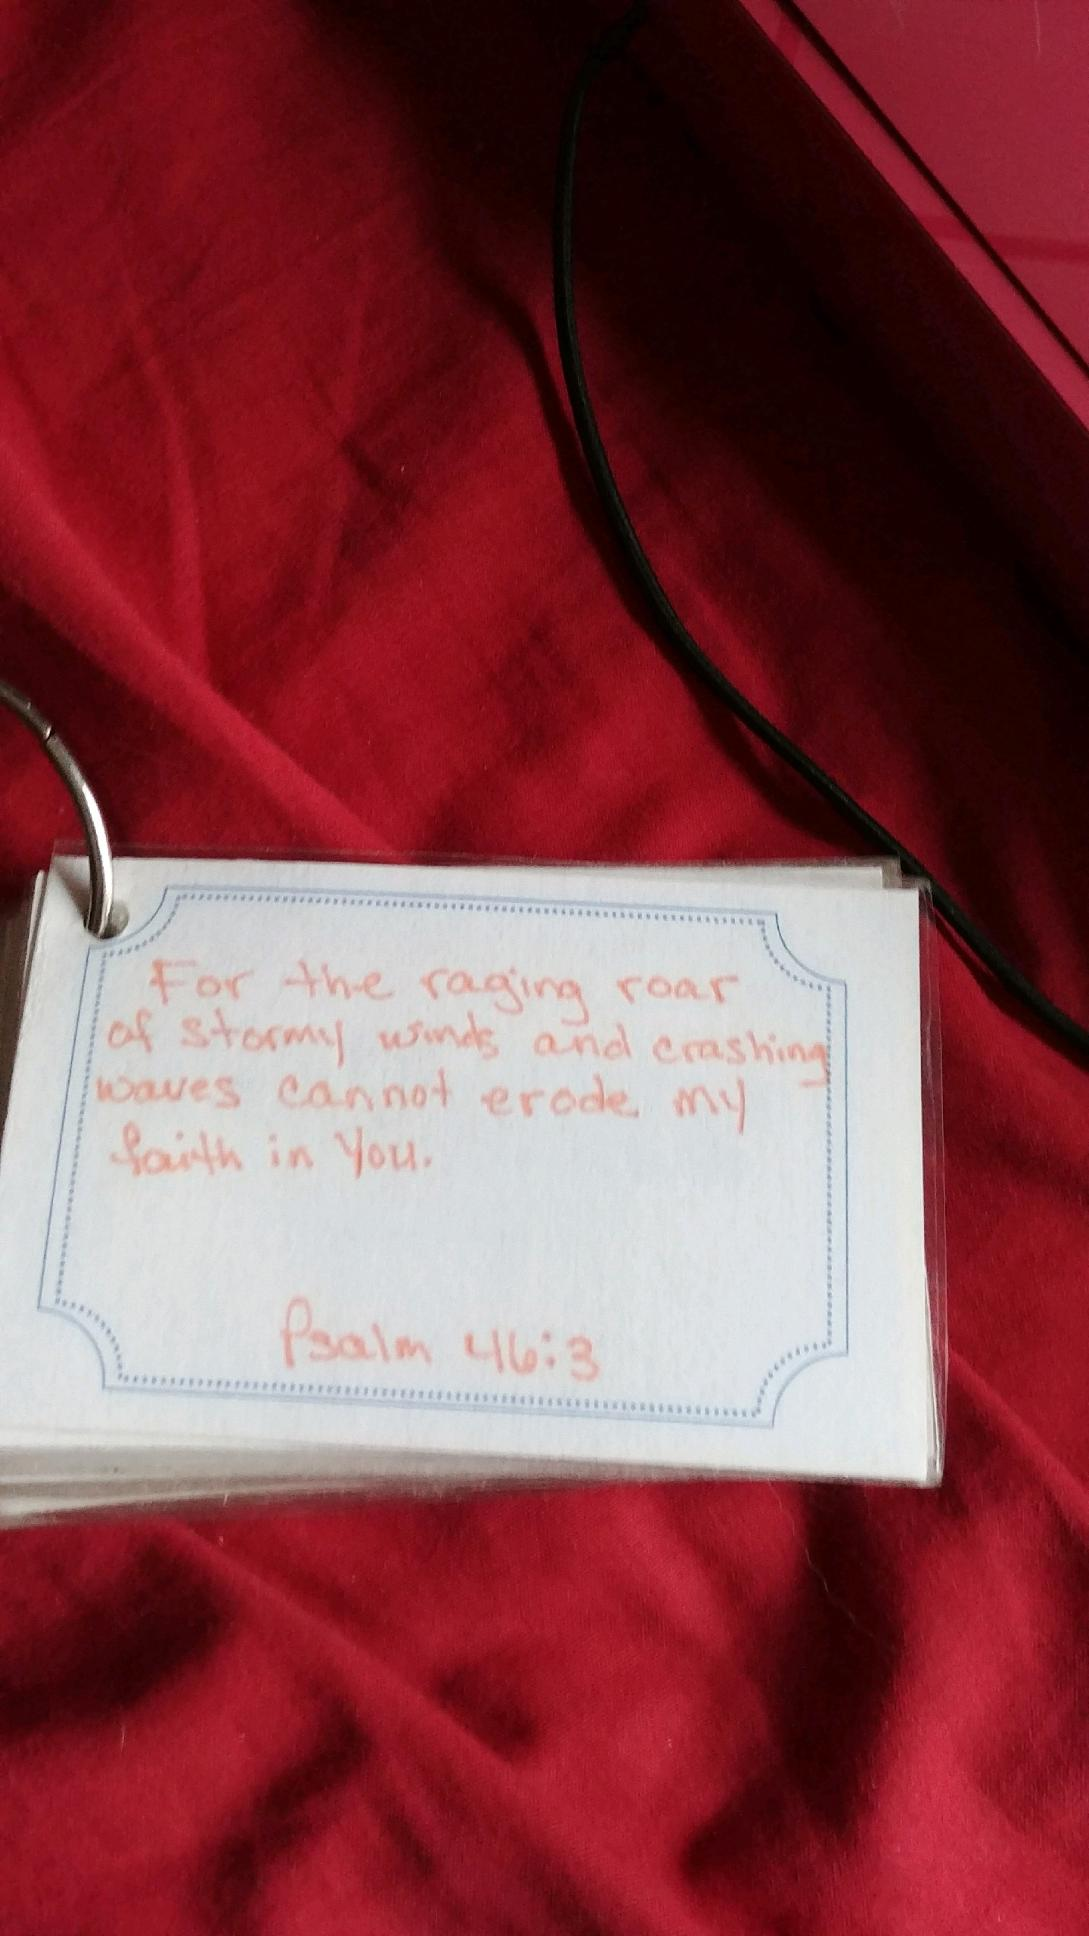 For the raging roar
of stormy winds and crashing
waves cannot erode my
faith in You.
Psalm 46:3